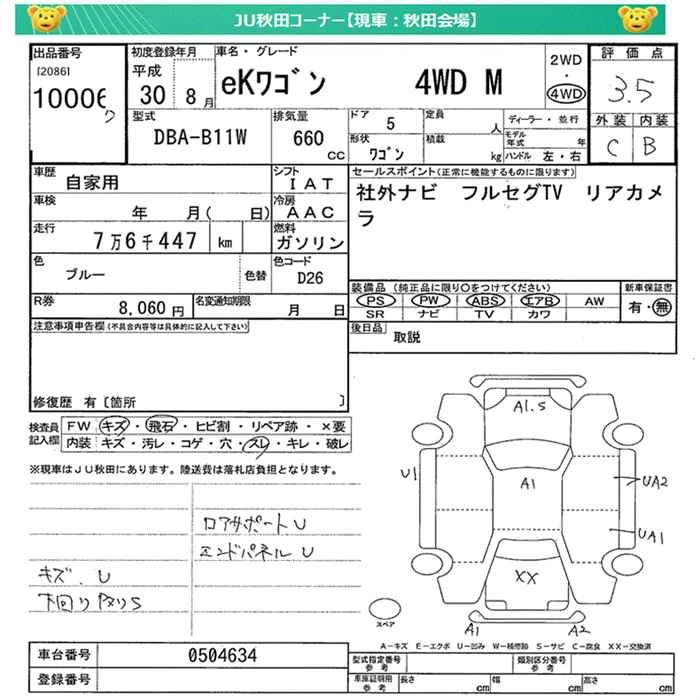 JU秋田コーナー【現車：秋田会場】
出品番号
[2086]
10006
初度登録年月
平成
30 8月
車名・グレード
eKワゴン 4WD M
2WD
・
4WD
評価点
3.5
外装 内装
C B
型式
DBA-B11W
排気量
660
CC
ドア
5
形状
ワゴン
定員
人
積載
kg
ディーラー・並行
モデル
年式 年
ハンドル 左・右
車歴
自家用
シフト
IAT
車検
年 月( 日)
冷房
AAC
走行
7万6千447 km
燃料
ガソリン
色
ブルー
色替
色コード
D26
R券
8,060 円
名変通知期限
月 日
セールスポイント(正常に機能するものに限ります)
社外ナビ フルセグTV リアカメ
ラ
装備品 (純正品に限り〇をつけてください)
PS PW ABS エアB AW
SR ナビ TV カワ
新車保証書
有・無
後日品
取説
注意事項申告欄(不具合内容等は具体的に記入して下さい)
修復歴 有〔箇所 〕
検査員
記入欄
FW キズ・飛石・ヒビ割・リペア跡・×要
内装 キズ・汚レ・コゲ・穴・スレ・キレ・破レ
※現車はJU秋田にあります。陸送費は落札店負担となります。
コアサポートU
エンドパネルU
キズ、U
下回りサビS
A1.5
A1
U1
UA2
UA1
XX
A1
A2
スペア
A－キズ E－エクボ U－凹み W－補修跡 S－サビ C－腐食 XX－交換済
車台番号
0504634
登録番号
型式指定番号
参考
類別区分番号
参考
車庫証明用
参考
長さ
cm
幅
cm
高さ
cm